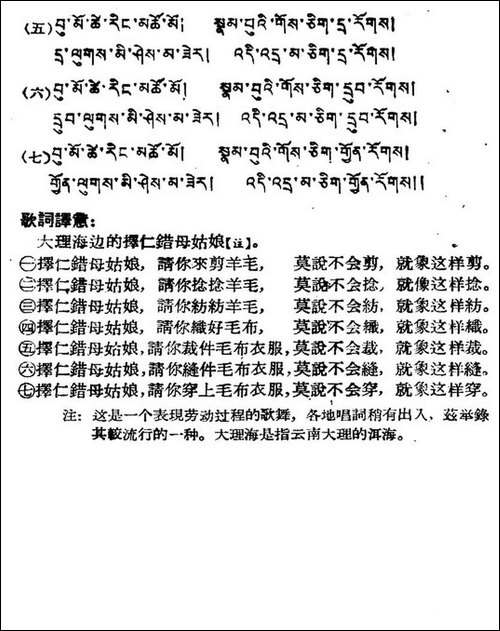 (五) བུ་མོ་ཚེ་རིང་མཚོ་མོ། སྣམ་བུའི་གོས་ཅིག་དྲ་རོགས།
དྲ་ལུགས་མི་ཤེས་མ་ཟེར། འདི་འདྲ་མ་ཅིག་དྲ་རོགས།
(六) བུ་མོ་ཚེ་རིང་མཚོ་མོ། སྣམ་བུའི་གོས་ཅིག་དྲུབ་རོགས།
དྲུབ་ལུགས་མི་ཤེས་མ་ཟེར། འདི་འདྲ་མ་ཅིག་དྲུབ་རོགས།
(七) བུ་མོ་ཚེ་རིང་མཚོ་མོ། སྣམ་བུའི་གོས་ཅིག་གྱོན་རོགས།
གྱོན་ལུགས་མི་ཤེས་མ་ཟེར། འདི་འདྲ་མ་ཅིག་གྱོན་རོགས།།
歌詞譯意:
大理海边的擇仁錯母姑娘【注】。
㊀擇仁錯母姑娘, 請你來剪羊毛, 莫說不会剪, 就象这样剪。
㊁擇仁錯母姑娘, 請你捻捻羊毛, 莫說不会捻, 就像这样捻。
㊂擇仁錯母姑娘, 請你紡紡羊毛, 莫說不会紡, 就象这样紡。
㊃擇仁錯母姑娘, 請你織好毛布, 莫說不会織, 就象这样織。
㊄擇仁錯母姑娘, 請你裁件毛布衣服, 莫說不会裁, 就象这样裁。
㊅擇仁錯母姑娘, 請你縫件毛布衣服, 莫說不会縫, 就象这样縫。
㊆擇仁錯母姑娘, 請你穿上毛布衣服, 莫說不会穿, 就象这样穿。
注: 这是一个表現劳动过程的歌舞, 各地唱詞稍有出入, 茲举錄
其較流行的一种。大理海是指云南大理的洱海。